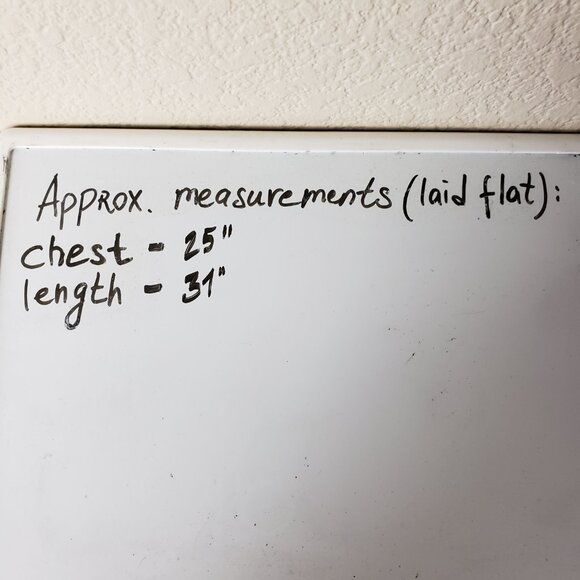 Approx. measurements (laid flat):
chest - 25"
length - 31"